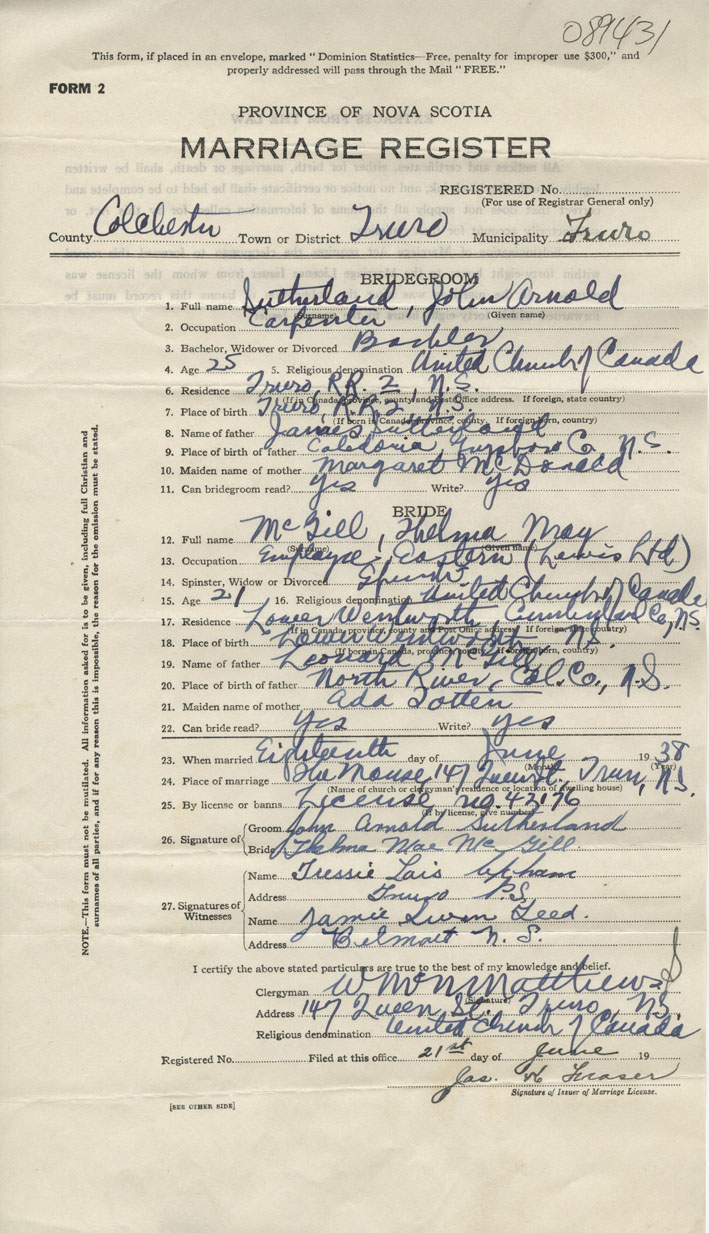 089431
This form, if placed in an envelope, marked "Dominion Statistics—Free, penalty for improper use $300," and
properly addressed will pass through the Mail "FREE."
FORM 2
PROVINCE OF NOVA SCOTIA
MARRIAGE REGISTER
REGISTERED No.
(For use of Registrar General only)
County Colchester Town or District Truro Municipality Truro
BRIDEGROOM
1. Full name Sutherland, John Arnold
(Surname) (Given name)
2. Occupation Carpenter
3. Bachelor, Widower or Divorced Bachler
4. Age 25 5. Religious denomination United Church of Canada
6. Residence Truro, R.R. 2, N.S.
(If in Canada, province, county and Post Office address. If foreign, state country)
7. Place of birth Truro, R.R. 2, N.S.
(If born in Canada, province, county. If foreign born, country)
8. Name of father James Sutherland
9. Place of birth of father Caledonia, Guysboro Co. N.S.
10. Maiden name of mother Margaret McDonald
11. Can bridegroom read? Yes Write? yes
BRIDE
12. Full name McGill, Thelma May
(Surname) (Given name)
13. Occupation Employe, Eastern (Lewis Ltd)
14. Spinster, Widow or Divorced
15. Age 21 16. Religious denomination United Church of Canada
17. Residence Lower Wentworth, Cumberland Co, N.S.
(If in Canada, province, county and Post Office address. If foreign, state country)
18. Place of birth Lower Wentworth, N.S.
(If born in Canada, province, county. If foreign born, country)
19. Name of father Leonard McGill
20. Place of birth of father North River, Col. Co., N.S.
21. Maiden name of mother Ada Totten
22. Can bride read? Yes Write? yes
23. When married Eighteenth day of June 1938
(Month) (Year)
24. Place of marriage The Manse, 147 Queen St., Truro, N.S.
(Name of church or clergyman's residence or location of dwelling house)
25. By license or banns License no. 42176
(If by license, give number)
26. Signature of Groom John Arnold Sutherland
Bride Thelma Mae McGill
27. Signatures of Witnesses
Name Tressie Lois Upham
Address Truro N.S.
Name Jamie Feed.
Address Belmont N.S.
I certify the above stated particulars are true to the best of my knowledge and belief.
Clergyman Matthews
(Signature)
Address 147 Queen St., Truro, N.S.
Religious denomination United Church of Canada
Registered No. Filed at this office 21st day of June 19
Jas. H Fraser
Signature of Issuer of Marriage License.
[SEE OTHER SIDE]
NOTE.—This form must not be mutilated. All information asked for is to be given, including full Christian and
surnames of all parties, and if for any reason this is impossible, the reason for the omission must be stated.